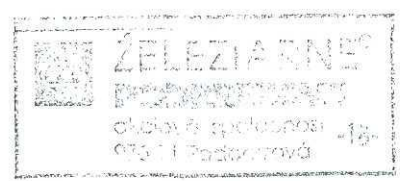 ŽELEZIARNE
akciová spoločnosť -18-
976 81 Podbrezová